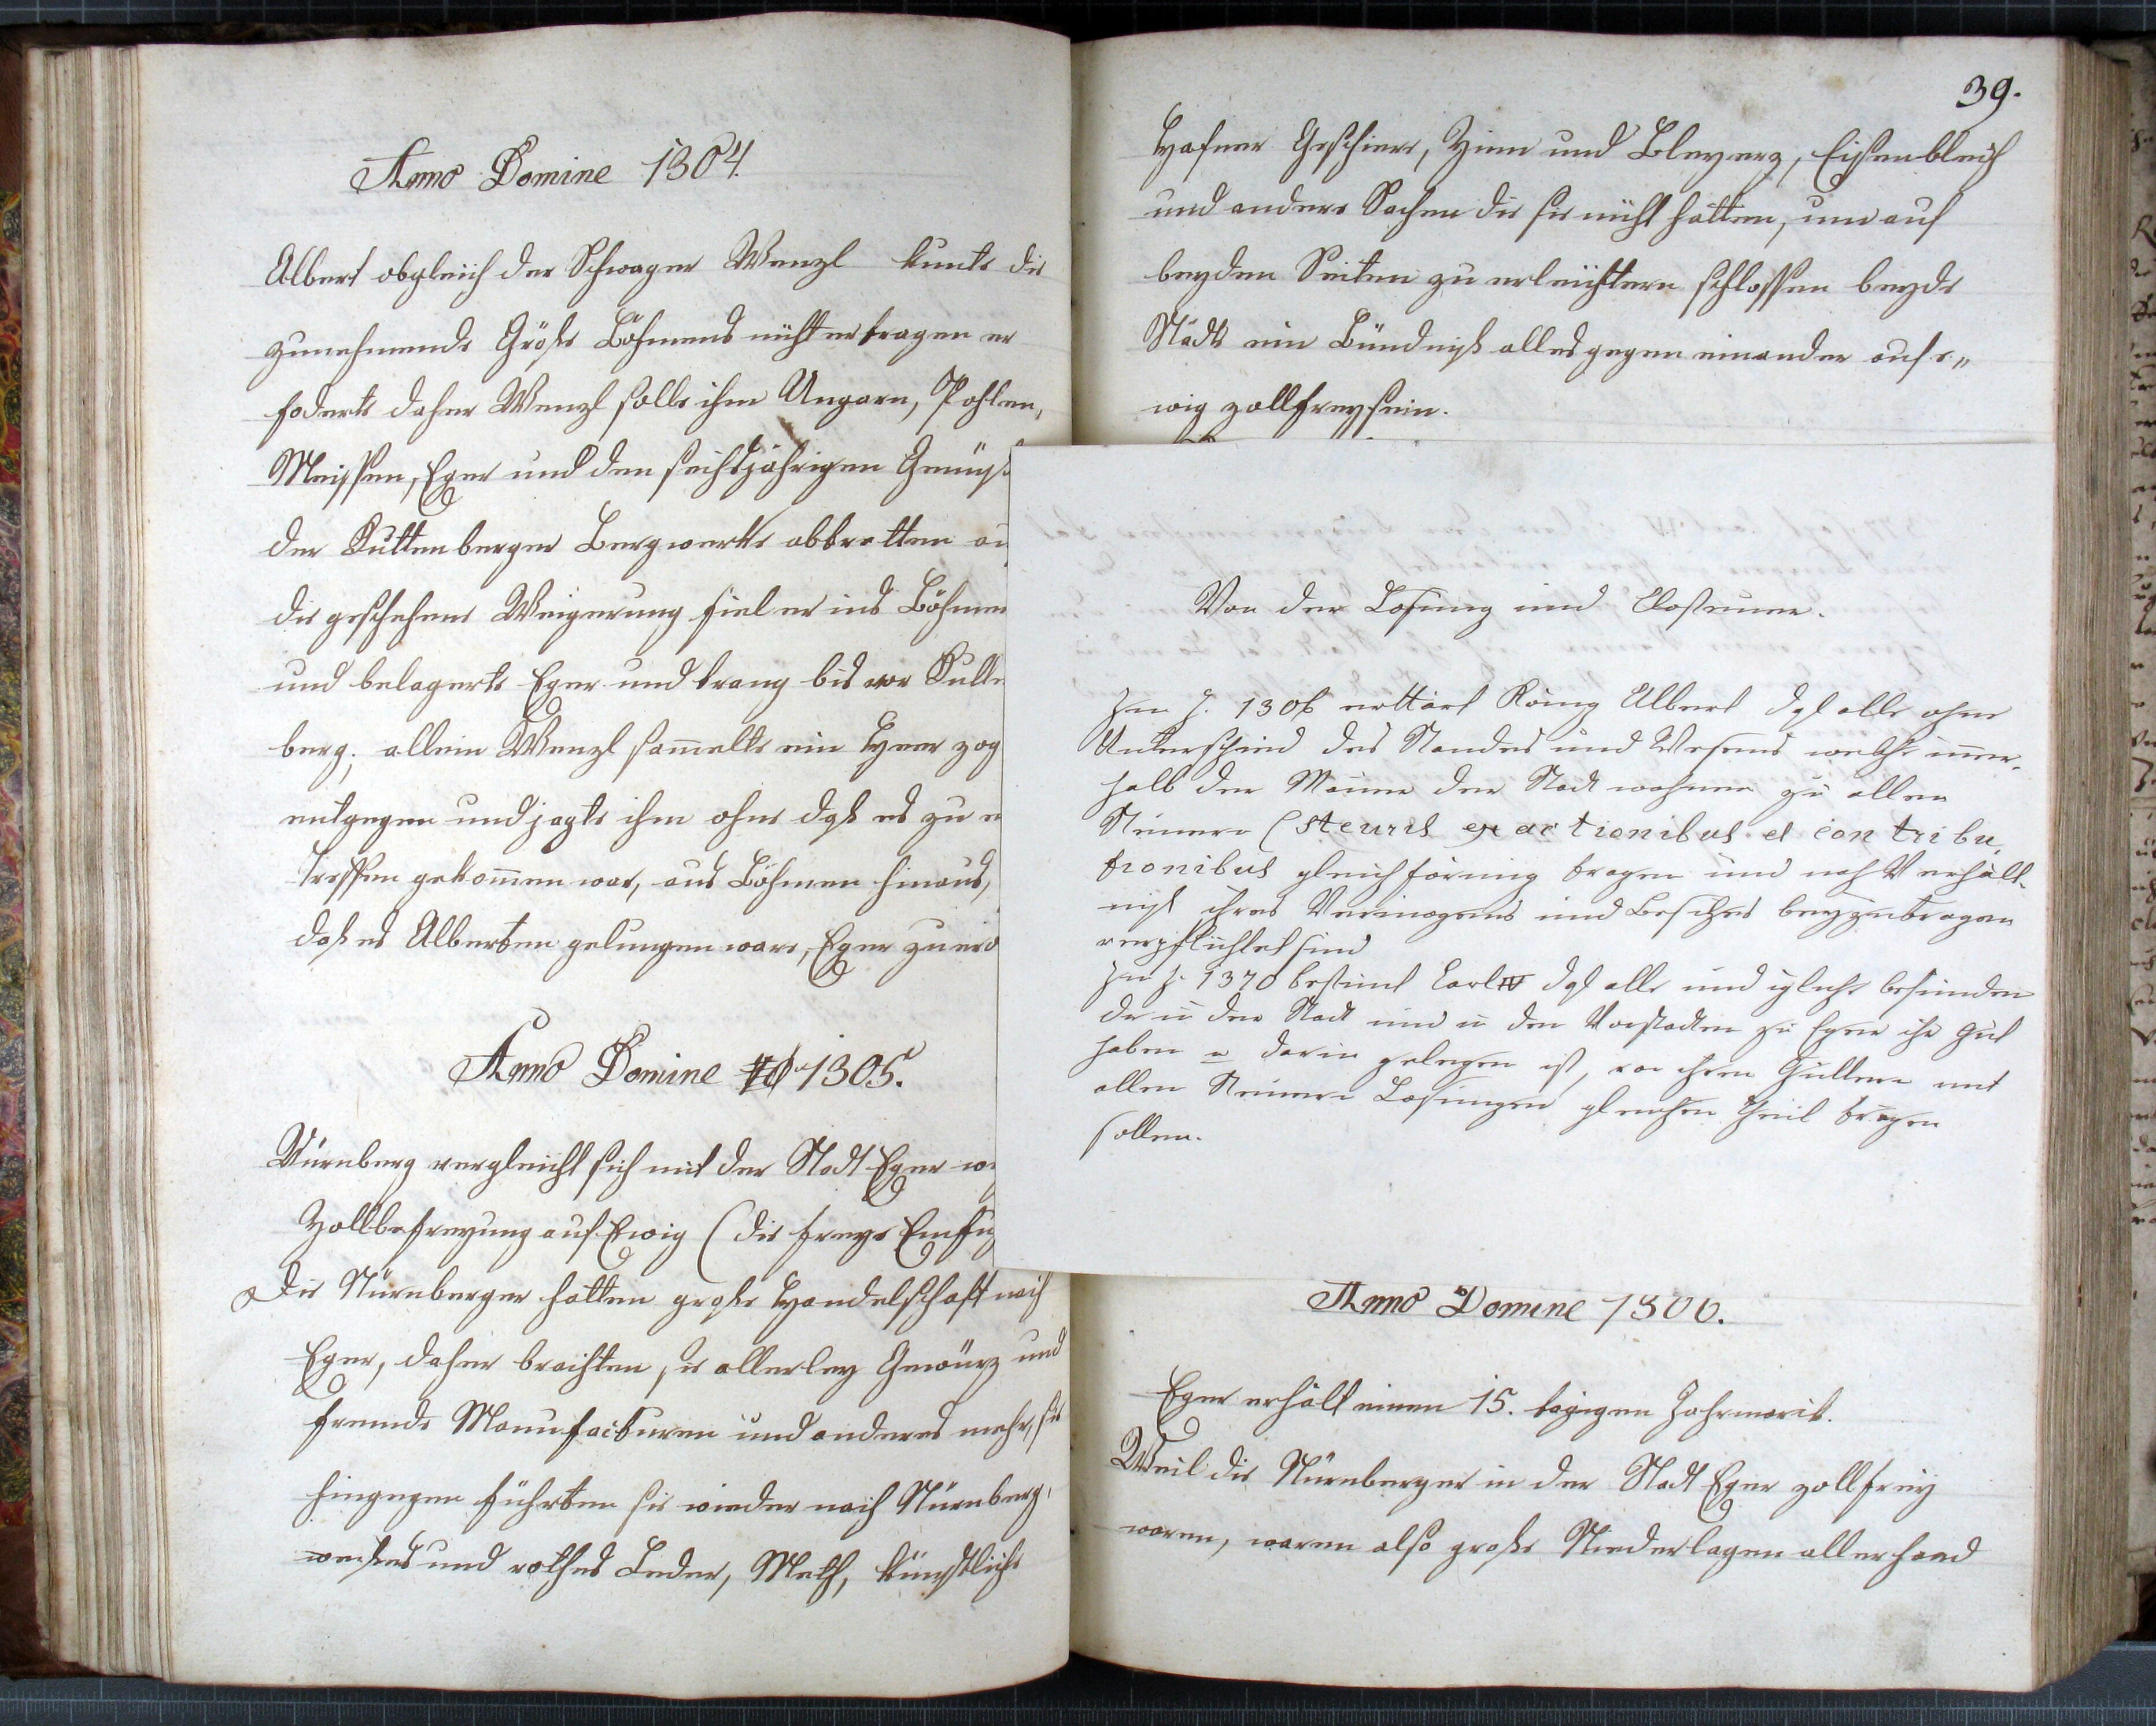 Anno Domine 1304.
Albert obgleich der Schwager Wenzl kunte die
zunehmende Größe Böhmens nicht ertragen er
foderte daher Wenzl solle ihm Ungarn, Pohlen,
Meissen, Eger und den sechsjährigen Genuß
der Kuttenberger Bergwerke abtretten
die geschehene Weigerung fiel er ins Böhmen
und belagerte Eger und trang bis vor Kutte
berg; allein Wenzl sam̄elte ein Heer zog
entgegen und jagte ihm ohne daß es zu
Treffen gekom̄en war, aus Böhmen hinaus,
daß es Alberten gelungen ware, Eger zu
Anno Domine 1305.
Nürnberg vergleicht sich mit der Stadt Eger
Zollbefreyung auf Ewig (die freye
Die Nürnberger hatten große Handelschaft nach
Eger, daher brachten sie allerley Gewürz und
fremde Manufacturen und anderes mehr, sie
hingegen führten sie wieder nach Nürnberg,
weißes und rothes Leder, Meth, künstliche
39.
Hafner Geschirr, Zinn und Bleyerz, Eisenblech
und andere Sachen die sie nicht hatten, um auf
beyden Seiten zu erleichtern schlossen beyde
Städte ein Bündniß alles gegen einander auf e„
wig zollfrey sein.
Von der Losung und Klosteuer.
Im J. 1306 erklärt König Albert daß alle ohne
Unterschied des Standes und Wesens welche inner-
halb der Mauer der Stadt wohnen zu allen
Steuern (steuris exactionibus et contribu
tionibus gleichförmig tragen und nach Verhält-
niß ihres Vermögens und Besitzes beyzutragen
verpflichtet sind
Im J. 1370 bestimt Carl IV daß alle und igliche besunder
die in der Stadt und in den Vorstadten zu Eger ihr Gut
haben u darin gelegen ist, von ihren Güttern mit
allen Steuern Losungen gleichen Theil tragen
sollen.
Anno Domine 1306.
Eger erhält einen 15. tagigen Jahrmarkt.
Weil die Nürnberger in der Stadt Eger zollfrey
waren, waren also große Niederlagen allerhand